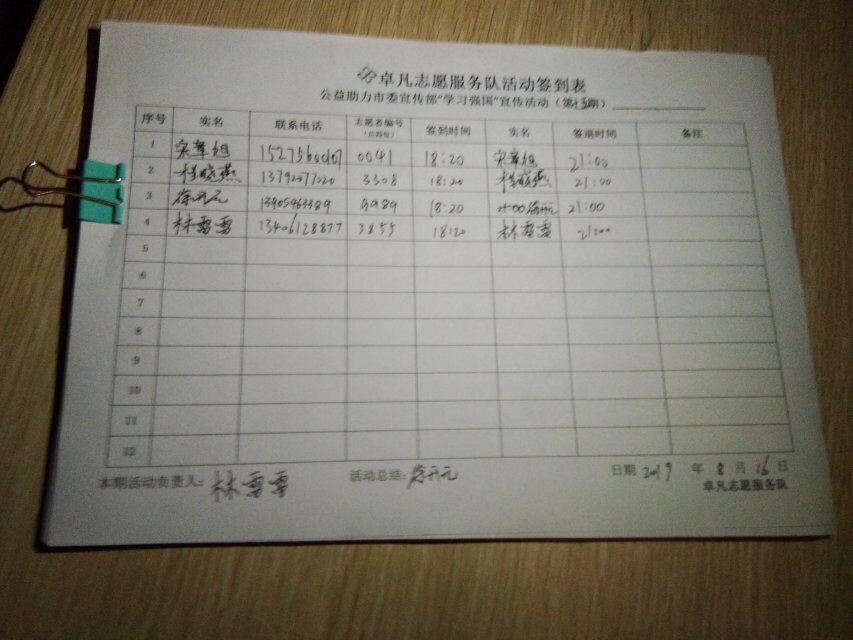 卓凡志愿服务队活动签到表
公益助力市委宣传部"学习强国"宣传活动（第 期）
序号 实名 联系电话 志愿者编号（后四位） 签到时间 实名 签退时间 备注
1 宋章旭 0041 18:20 宋章旭 21:00
2 杨晓燕 13792077020 3308 18:20 杨晓燕 21:00
3 13905963389 9989 18:20 21:00
4 林雪雪 13406128877 3855 18:20 林雪雪 21:00
5
6
7
8
9
10
11
12
本期活动负责人：林雪雪 活动总结： 日期 2019 年 8 月 16 日
卓凡志愿服务队